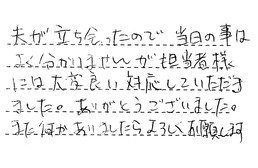 夫が立ち会ったので 当日の事は
よく分かりませんが 担当者様
には大変良い対応していただき
ました。ありがとうございました。
また何かありましたらよろしくお願します